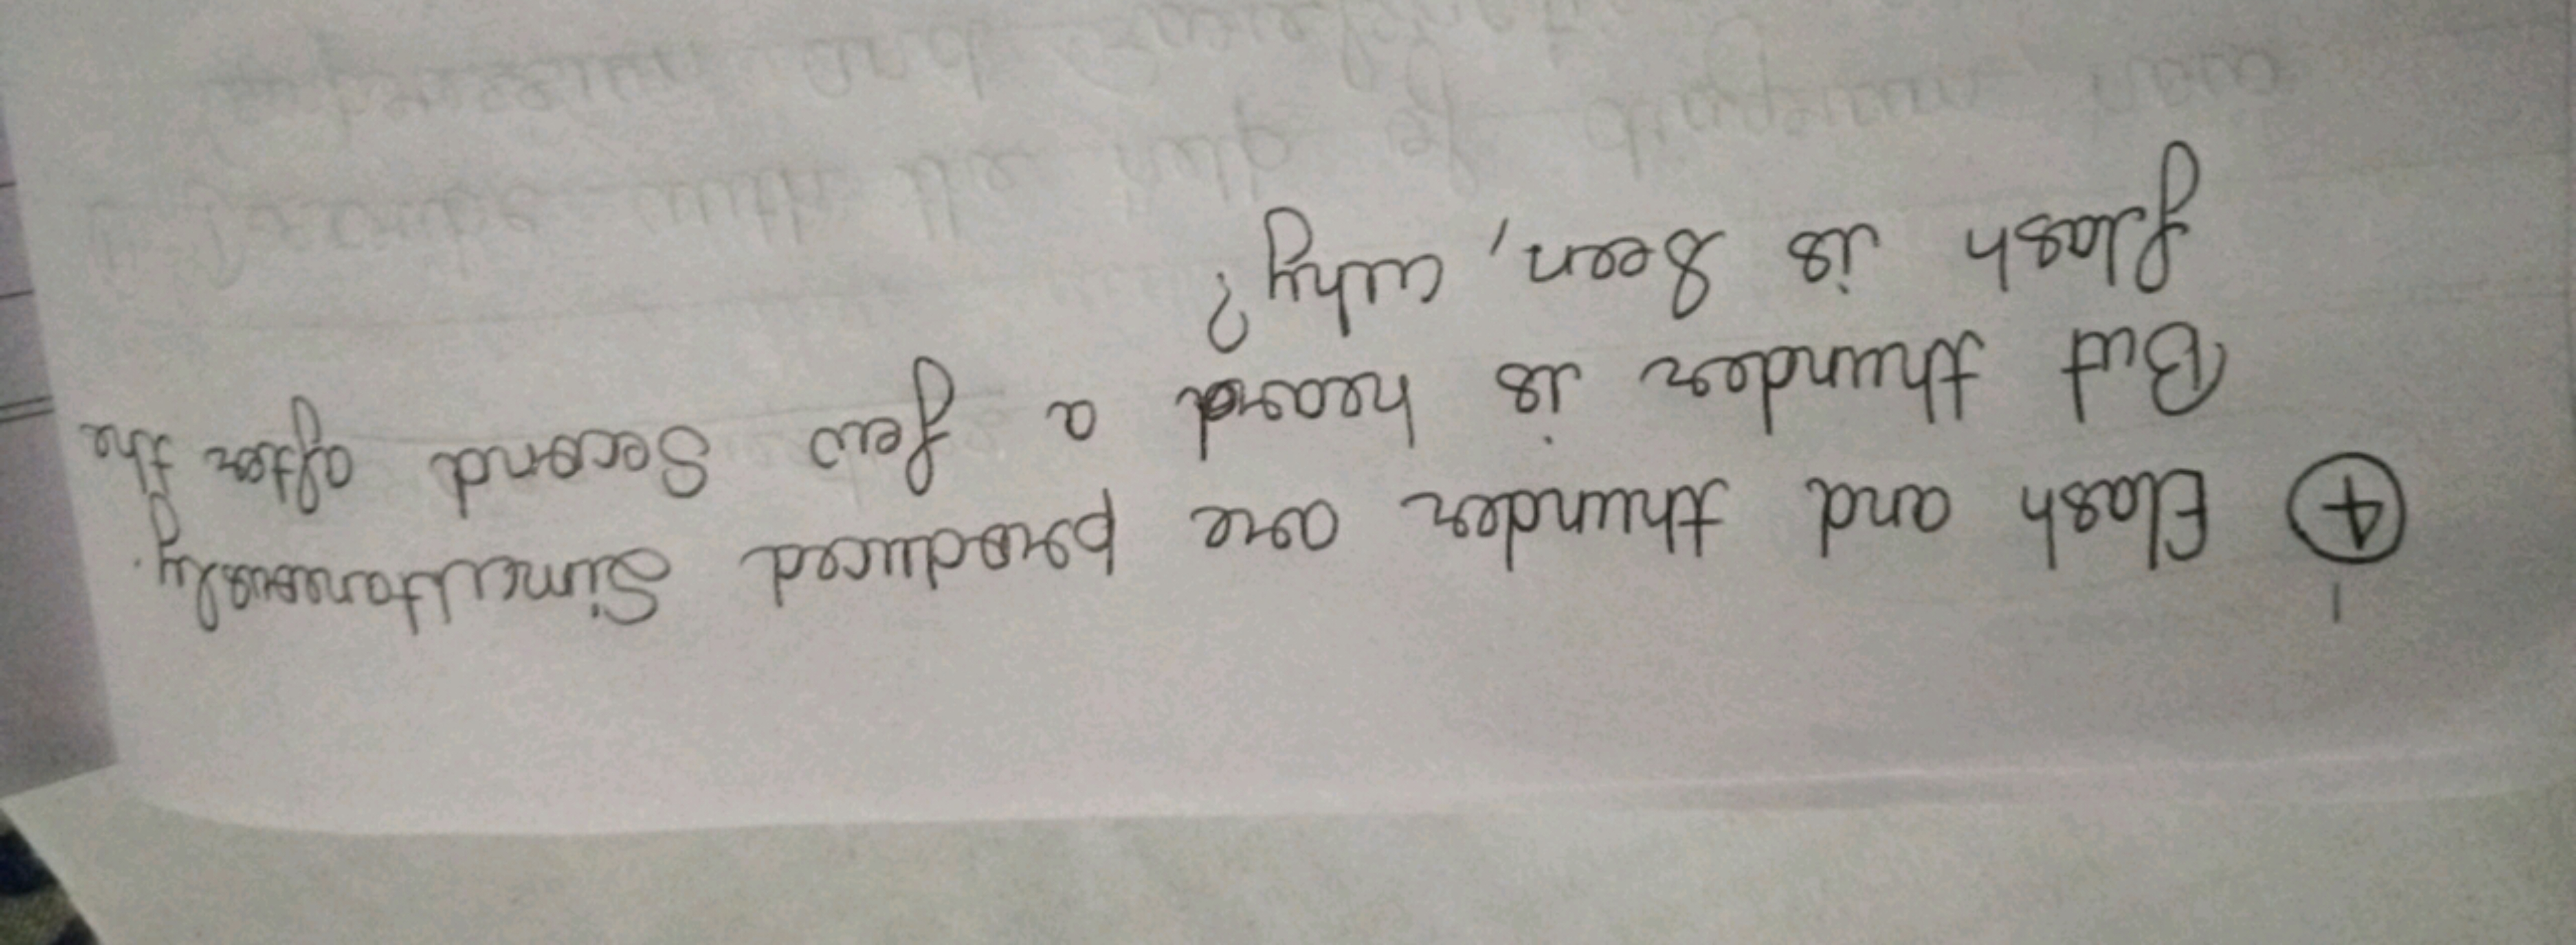 ④ Flash and thunder are produced Simultaneously.
But thunder is heard a few Second after the
flash is Seen, why?